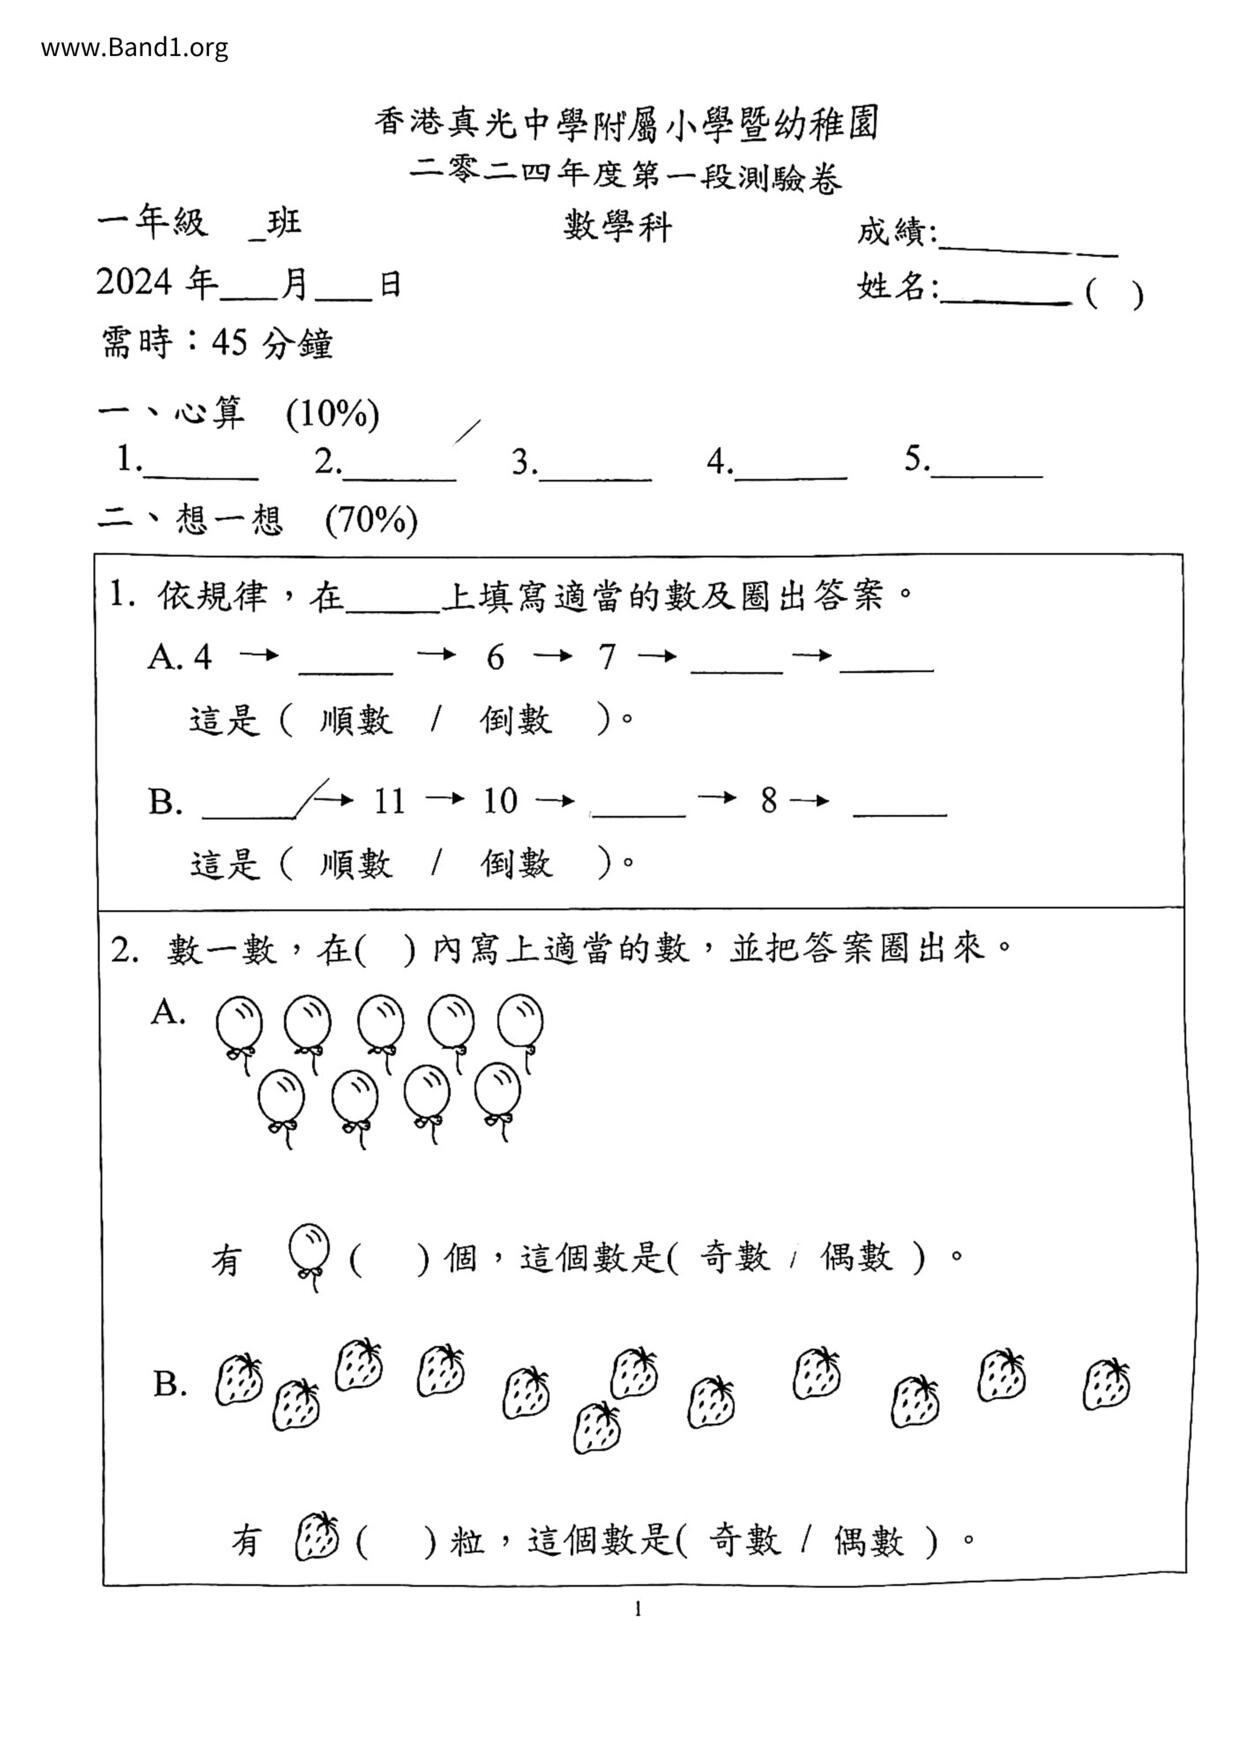 www.Band1.org
香港真光中學附屬小學暨幼稚園
二零二四年度第一段測驗卷
一年級 _班 數學科 成績:________
2024 年___月___日 姓名:_______ ( )
需時：45 分鐘
一、心算 (10%)
1.______ 2.______ 3.______ 4.______ 5.______
二、想一想 (70%)
1. 依規律，在_____上填寫適當的數及圈出答案。
A. 4 → _____ → 6 → 7 → _____ → _____
這是 ( 順數 / 倒數 )。
B. _____ → 11 → 10 → _____ → 8 → _____
這是 ( 順數 / 倒數 )。
2. 數一數，在( ) 內寫上適當的數，並把答案圈出來。
A.
有 ( ) 個，這個數是( 奇數 / 偶數 ) 。
B.
有 ( ) 粒，這個數是( 奇數 / 偶數 ) 。
1